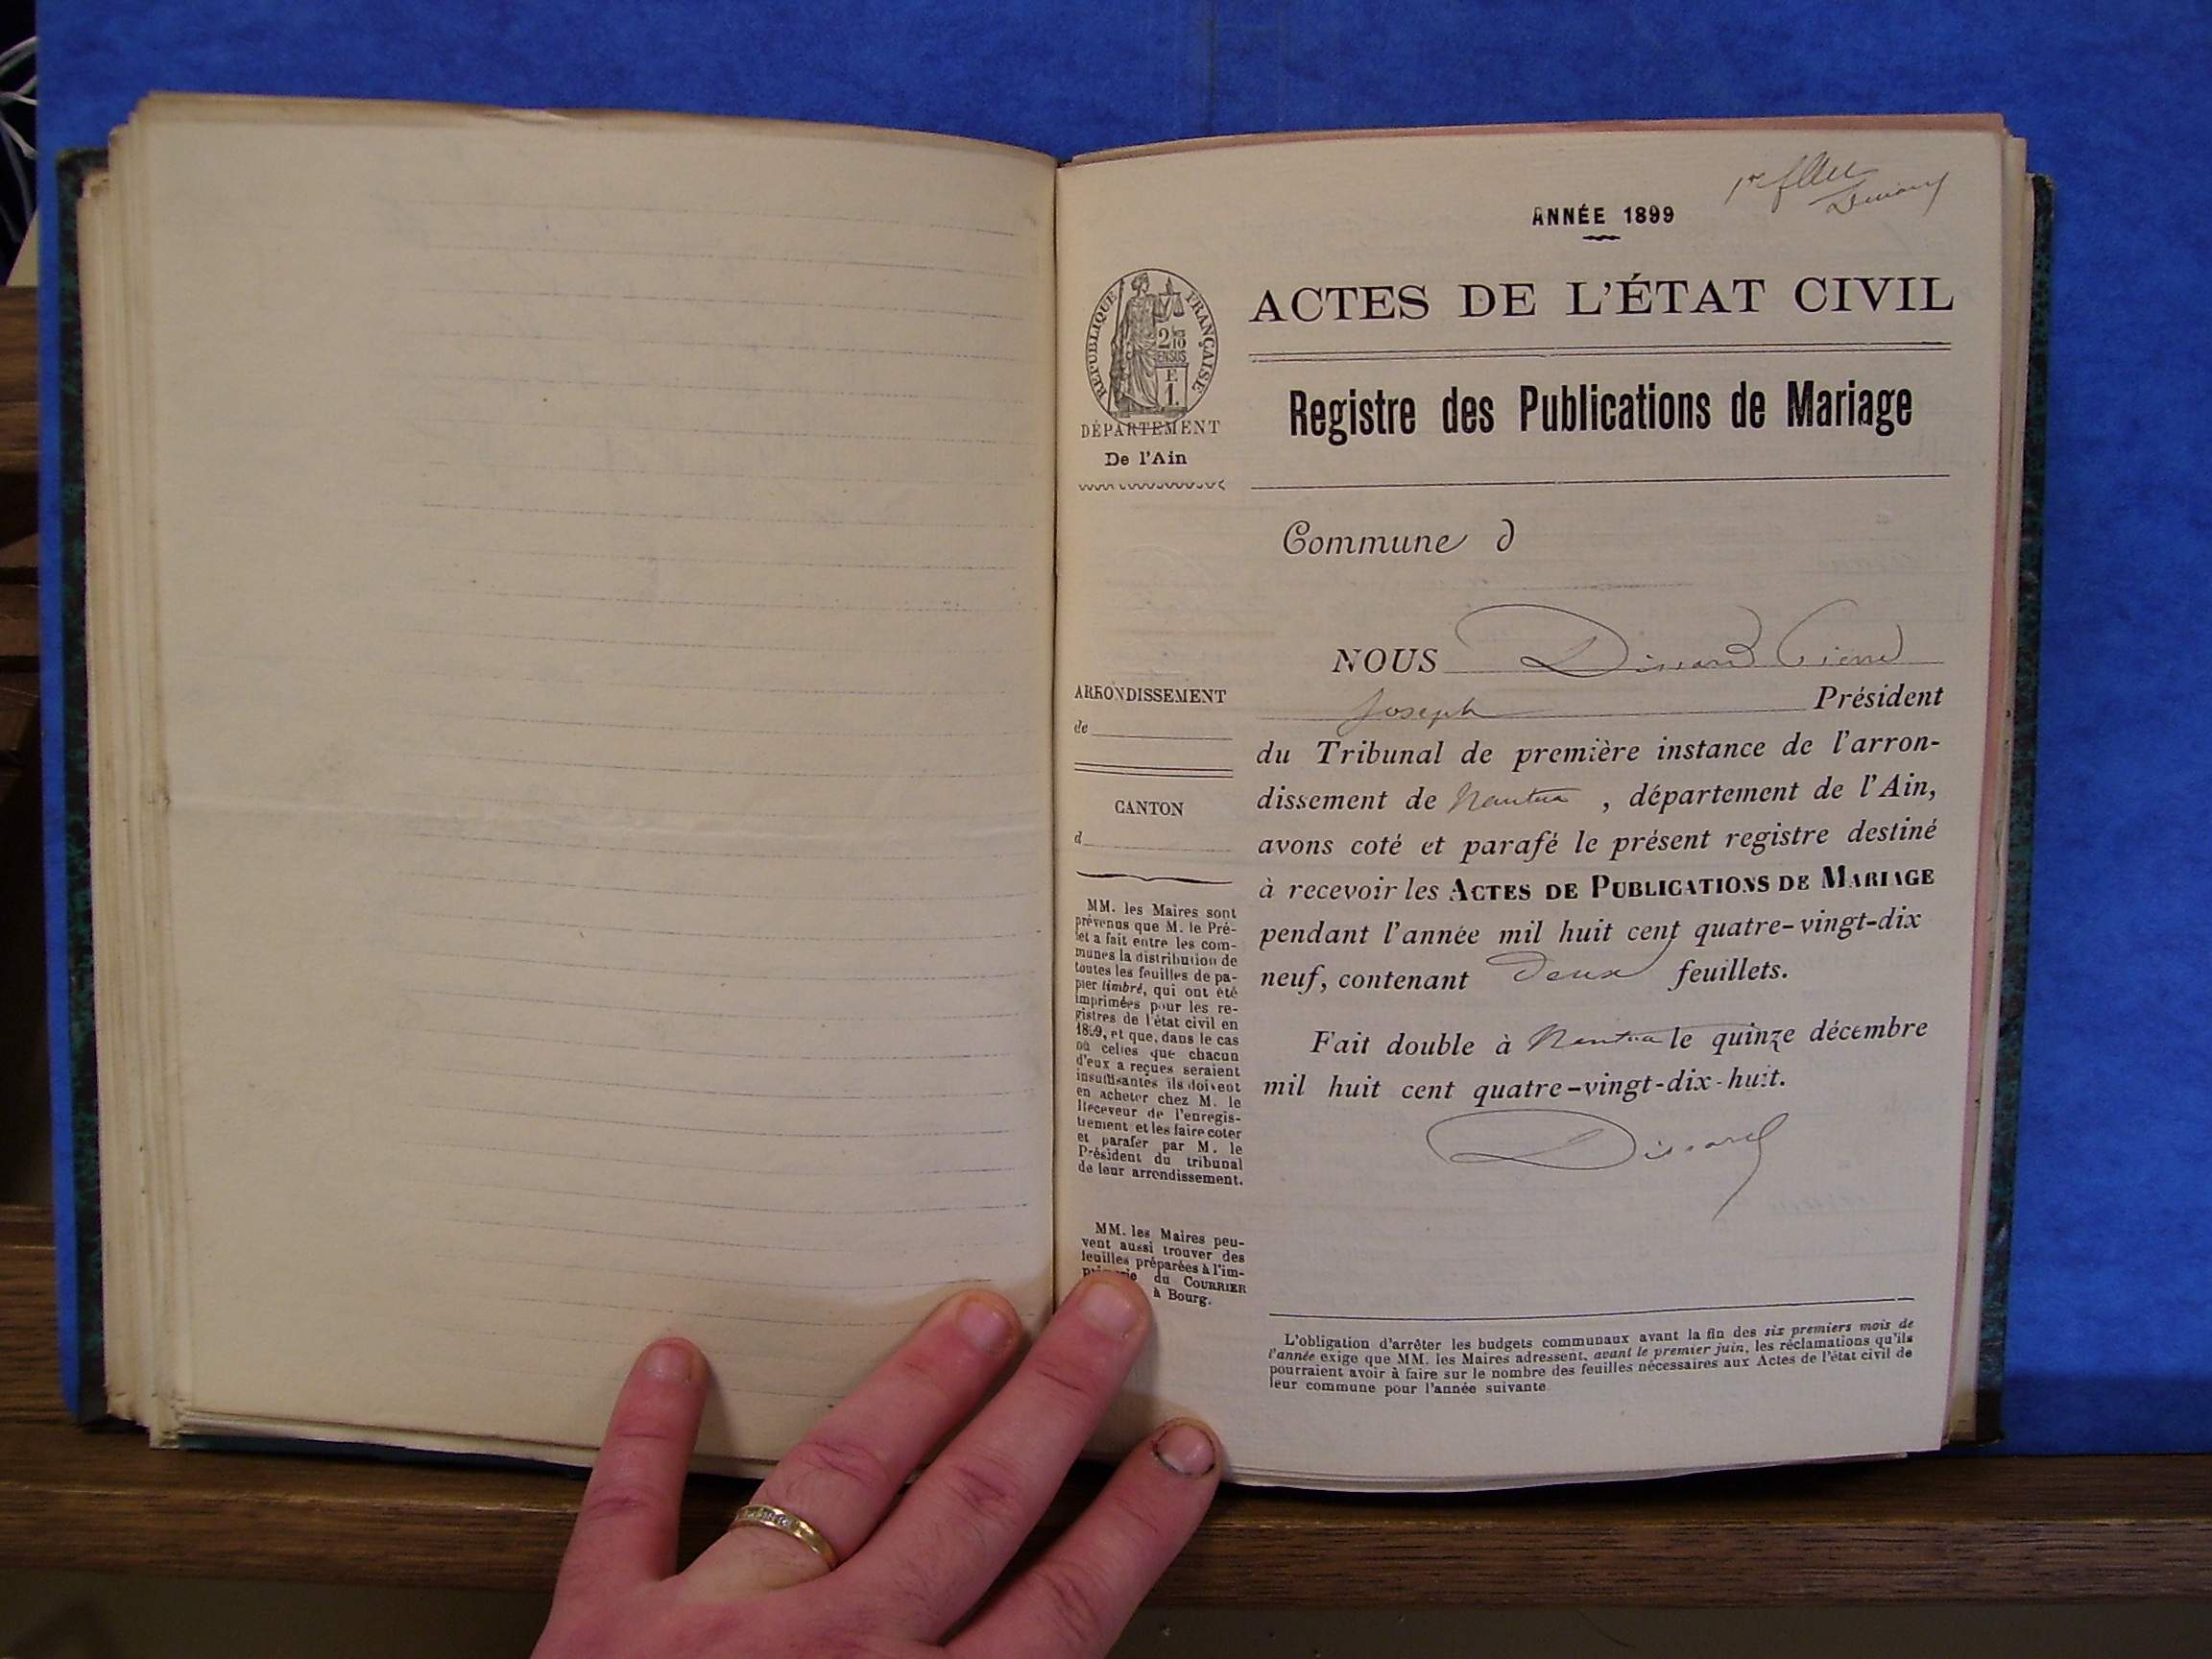 1er fllet
Dissard
ANNÉE 1899
ACTES DE L'ÉTAT CIVIL
Registre des Publications de Mariage
RÉPUBLIQUE FRANÇAISE
2/10
EN SUS
F.
1.
DÉPARTEMENT
De l'Ain
Commune d
NOUS Dissard Pierre
Joseph Président
du Tribunal de première instance de l'arron-
dissement de Nantua, département de l'Ain,
avons coté et parafé le présent registre destiné
à recevoir les ACTES DE PUBLICATIONS DE MARIAGE
pendant l'année mil huit cent quatre-vingt-dix
neuf, contenant Deux feuillets.
Fait double à Nantua le quinze décembre
mil huit cent quatre-vingt-dix-huit.
Dissard
ARRONDISSEMENT
de
CANTON
d
MM. les Maires sont
prévenus que M. le Pré-
fet a fait entre les com-
munes la distribution de
toutes les feuilles de pa-
pier timbré, qui ont été
imprimées pour les re-
gistres de l'état civil en
1899, et que, dans le cas
où celles que chacun
d'eux a reçues seraient
insuffisantes ils doivent
en acheter chez M. le
Receveur de l'enregis-
trement et les faire coter
et parafer par M. le
Président du tribunal
de leur arrondissement.
MM. les Maires peu-
vent aussi trouver des
feuilles préparées à l'im-
primerie du COURRIER
à Bourg.
L'obligation d'arrêter les budgets communaux avant la fin des six premiers mois de
l'année exige que MM. les Maires adressent, avant le premier juin, les réclamations qu'ils
pourraient avoir à faire sur le nombre des feuilles nécessaires aux Actes de l'état civil de
leur commune pour l'année suivante